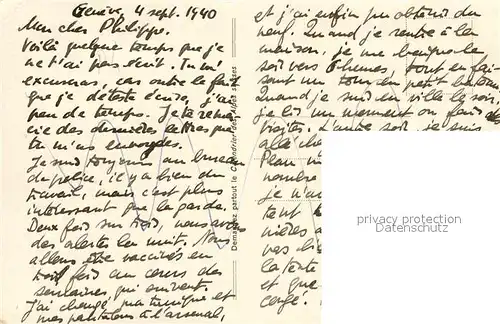 Genève, 4 sept. 1940
Mon cher Philippe.
Voilà quelque temps que je
ne t'ai pas écrit. Tu m'
excuseras, car outre le fait
que je déteste écrire, j'ai
peu de temps. Je te remer
cie des dernières lettres que
tu m'as envoyées.
Je suis toujours au bureau
de police, il y a bien du
travail, mais c'est plus
intéressant que la garde.
Deux fois sur trois, nous avons
des alertes la nuit. Nous
allons être vaccinés en
trois fois au cours des
semaines qui suivent.
J'ai changé ma tunique et
mes pantalons à l'arsenal,
Demandez partout le Calendrier des Alpes suisses
et j'ai enfin pu obtenir du
neuf. Quand je rentre à la
maison, je me
soir vers 6 heures, tout en fai
sant un tour du petit
Quand je suis en ville le soir,
je lis un moment ou fais des
visites. L'autre soir, je suis
allé
nombre
je n'a
tant
nières a
vas
la terre
et que
privacy protection
www.oldthing.com